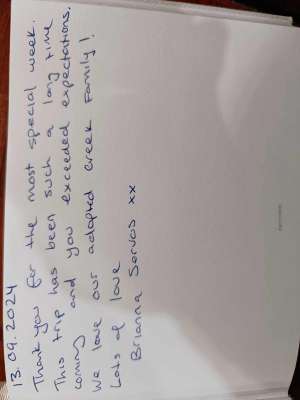 13.09.2024
Thank you for the most special week.
This trip has been such a long time
coming and you exceeded expectations.
We love our adopted creek family!
Lots of love
Brianna Servais xx